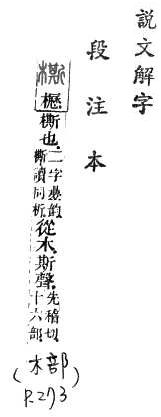 說文解字
段注本
㯕
櫪㯕也。二字㬪韵。㯕讀同析。從木。斯聲。先稽切。十六部。
(木部)
P.273